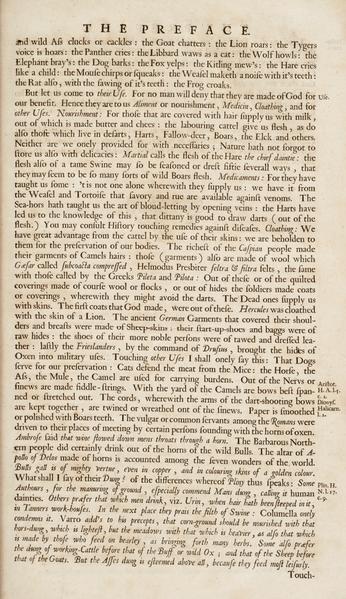 THE PREFACE.
and wild Ass clocks or cackles : the Goat chatters : the Lion roars : the Tygers
voice is hoars : the Panther cries : the Libbard waws as a cat : the Wolf howls : the
Elephant bray's : the Dog barks : the Fox yelps : the Kitling mew's : the Hare cries
like a child : the Mouse chirps or squeaks : the Weasel maketh a noise with it's teeth :
the Rat also , with the sawing of it's teeth : the Frog croaks.
But let us come to their Use. For no man will deny that they are made of God for Use.
our benefit. Hence they are to us Aliment or nourishment, Medicin, Cloathing, and for
other Uses. Nourishment : For those that are covered with hair supply us with milk ,
out of which is made butter and chees : the labouring cattel give us flesh , as do
also those which live in desarts, Harts , Fallow-deer, Boars, the Elck and others.
Neither are we onely provided for with necessaries; Nature hath not forgot to
store us also with delicacies : Martial calls the flesh of the Hare the chief dauntie : the
flesh also of a tame Swine may so be seasoned or drest fiftie severall ways , that
they may seem to be so many forts of wild Boars flesh. Medicaments : For they have
taught us some : 't is not one alone wherewith they supply us : we have it from
the Weasel and Tortoise that savory and rue are available against venoms. The
Sea-hors hath taught us the art of blood-letting by opening veins : the Harts have
led us to the knowledge of this , that dittany is good to draw darts (out of the
flesh.) You may consult History touching remedies against diseases. Cloathing : We
have great advantage from the cattel by the use of their skins : we are beholden to
them for the preservation of our bodies. The richest of the Caspian people made
their garments of Camels hairs : those (garments) also are made of wool which
Cæsar called subcoacta compressed , Helmodus Presbiter feltra & filtra felts , the same
with those called by the Greeks Pileta and Pilota : Out of these or of the quilted
coverings made of course wool or flocks , or out of hides the soldiers made coats
or coverings , wherewith they might avoid the darts. The Dead ones supply us
with skins. The first coats that God made , were out of these. Hercules was cloathed
with the skin of a Lion. The ancient German Garments that covered their shoul-
ders and breasts were made of Sheep-skins ; their start-up-shoes and baggs were of
raw hides : the shoes of their more noble persons were of tawed and dressed lea-
ther : lastly the Frieslanders , by the command of Drusus , brought the hides of
Oxen into military uses. Touching other Uses I shall onely say this : That Dogs
serve for our preservation : Cats defend the meat from the Mice : the Horse , the
Ass , the Mule , the Camel are used for carrying burdens. Out of the Nerves or Aristot.
sinews are made fiddle-strings. With the yard of the Camels are bows best span- H. A. l.4.
ned or stretched out. The cords, wherewith the arms of the dart-shooting bows
are kept together , are twined or wreathed ont of the sinews. Paper is smoothed Halicarn.
or polished with Boars teeth. The vulgar or common servants among the Romans were
driven to their places of meeting by certain persons founding with the horns of oxen.
Ambrose said that wine flowed down mens throats through a horn. The Barbarous North-
ern people did certainly drink out of the horns of the wild Bulls. The altar of A-
pollo of Delos made of horns is accounted among the seven wonders of the world.
Bulls gall is of mighty vertue , even in copper , and in colouring skins of a golden colour.
What shall I say of their Dung ? of the differences whereof Pliny thus speaks : Some Plin. H.
Authours , for the manuring of ground , especially commend Mans dung , calling it human N. l.17.
dainties. Others præfer that which men drink, viz. Urin, when hair hath been steeped in it, c.9.
in Tanners work-houses. In the next place they prais the filth of Swine : Columella onely
condemns it. Varro add's to his precepts , that corn-ground should be nourished with that
hors-dung, which is lightest, but the meadows with that which is heavier , as also that which
is made by those who feed on bearley , as bringing forth many herbs. Some also præfer
the dung of working-Cattle before that of the Buff or wild Ox ; and that of the Sheep before
that of the Goats. But the Asses dung is esteemed above all , because they feed most leisurly.
Touch-